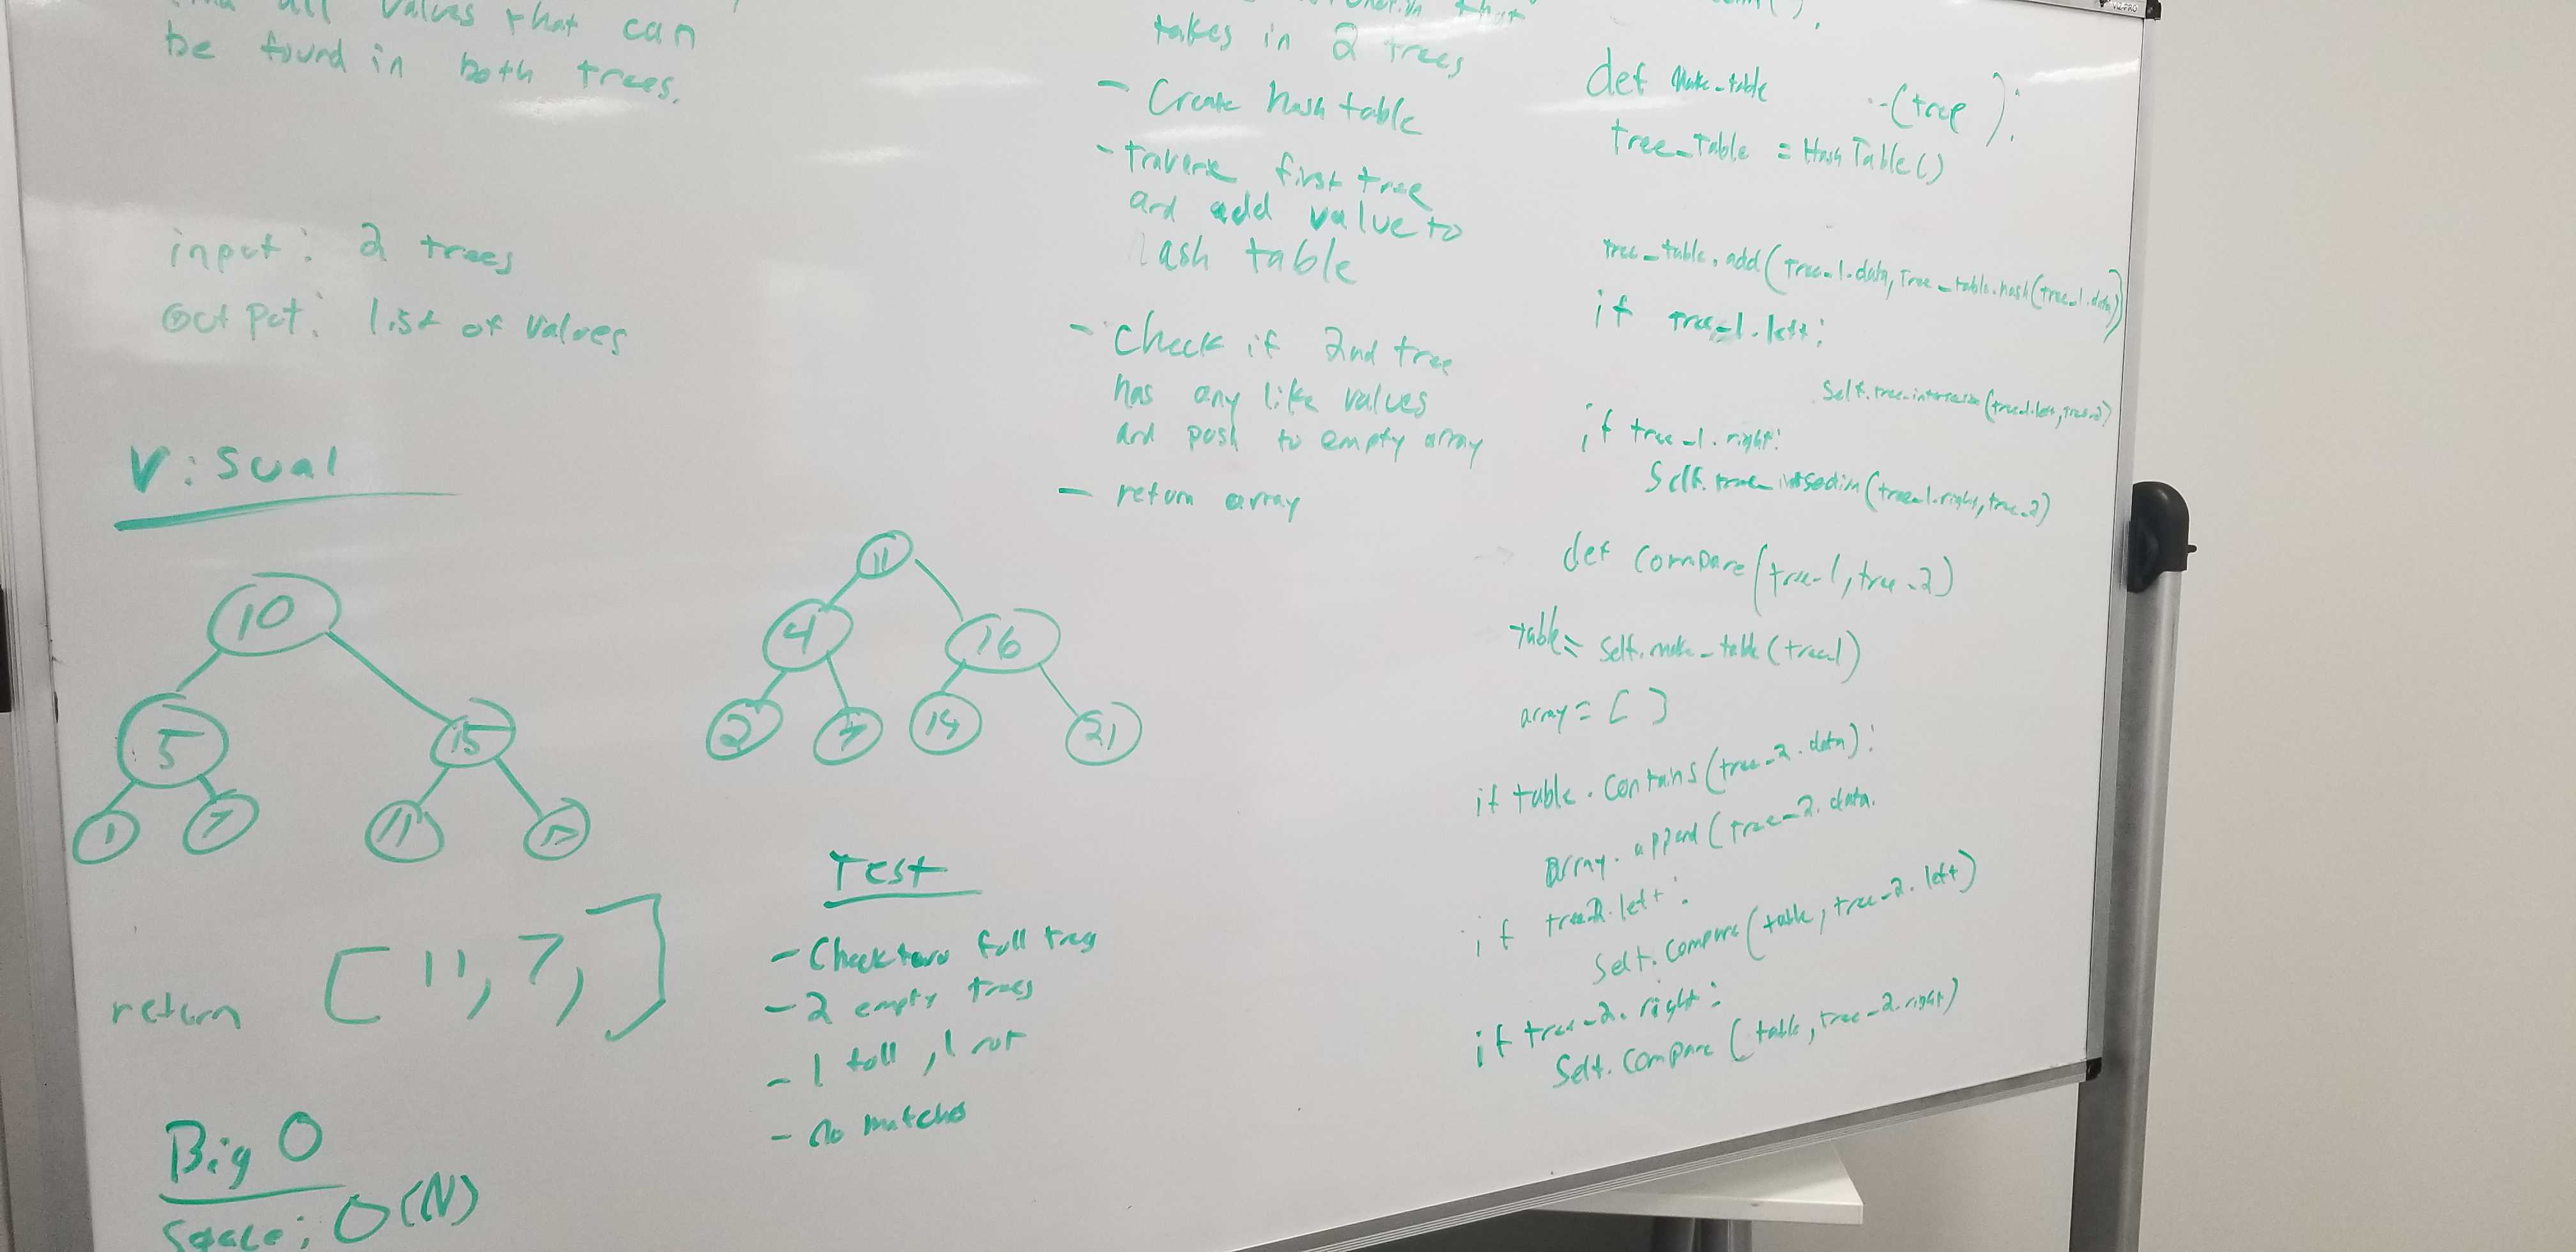 all values that can
be found in both trees.
input: 2 trees
Output: list of values
Visual
10
5
15
1
7
11
11
4
16
2
7
14
21
return [11, 7,]
Big O
Space: O(N)
Test
- Check two full trees
- 2 empty trees
- 1 full, 1 not
- no matches
takes in 2 trees
- Create hash table
- traverse first tree
and add value to
hash table
- check if 2nd tree
has any like values
and push to empty array
- return array
def make_table (tree):
tree_table = HashTable()
tree_table.add(tree_1.data, tree_table.hash(tree_1.data))
if tree_1.left:
self.tree_intersection(tree_1.left, tree_2)
if tree_1.right:
self.tree_intersection(tree_1.right, tree_2)
def compare(tree_1, tree_2)
table = self.make_table(tree1)
array = []
if table.contains(tree_2.data):
array.append(tree_2.data.
if tree2.left:
self.compare(table, tree_2.left)
if tree_2.right:
self.compare(table, tree_2.right)